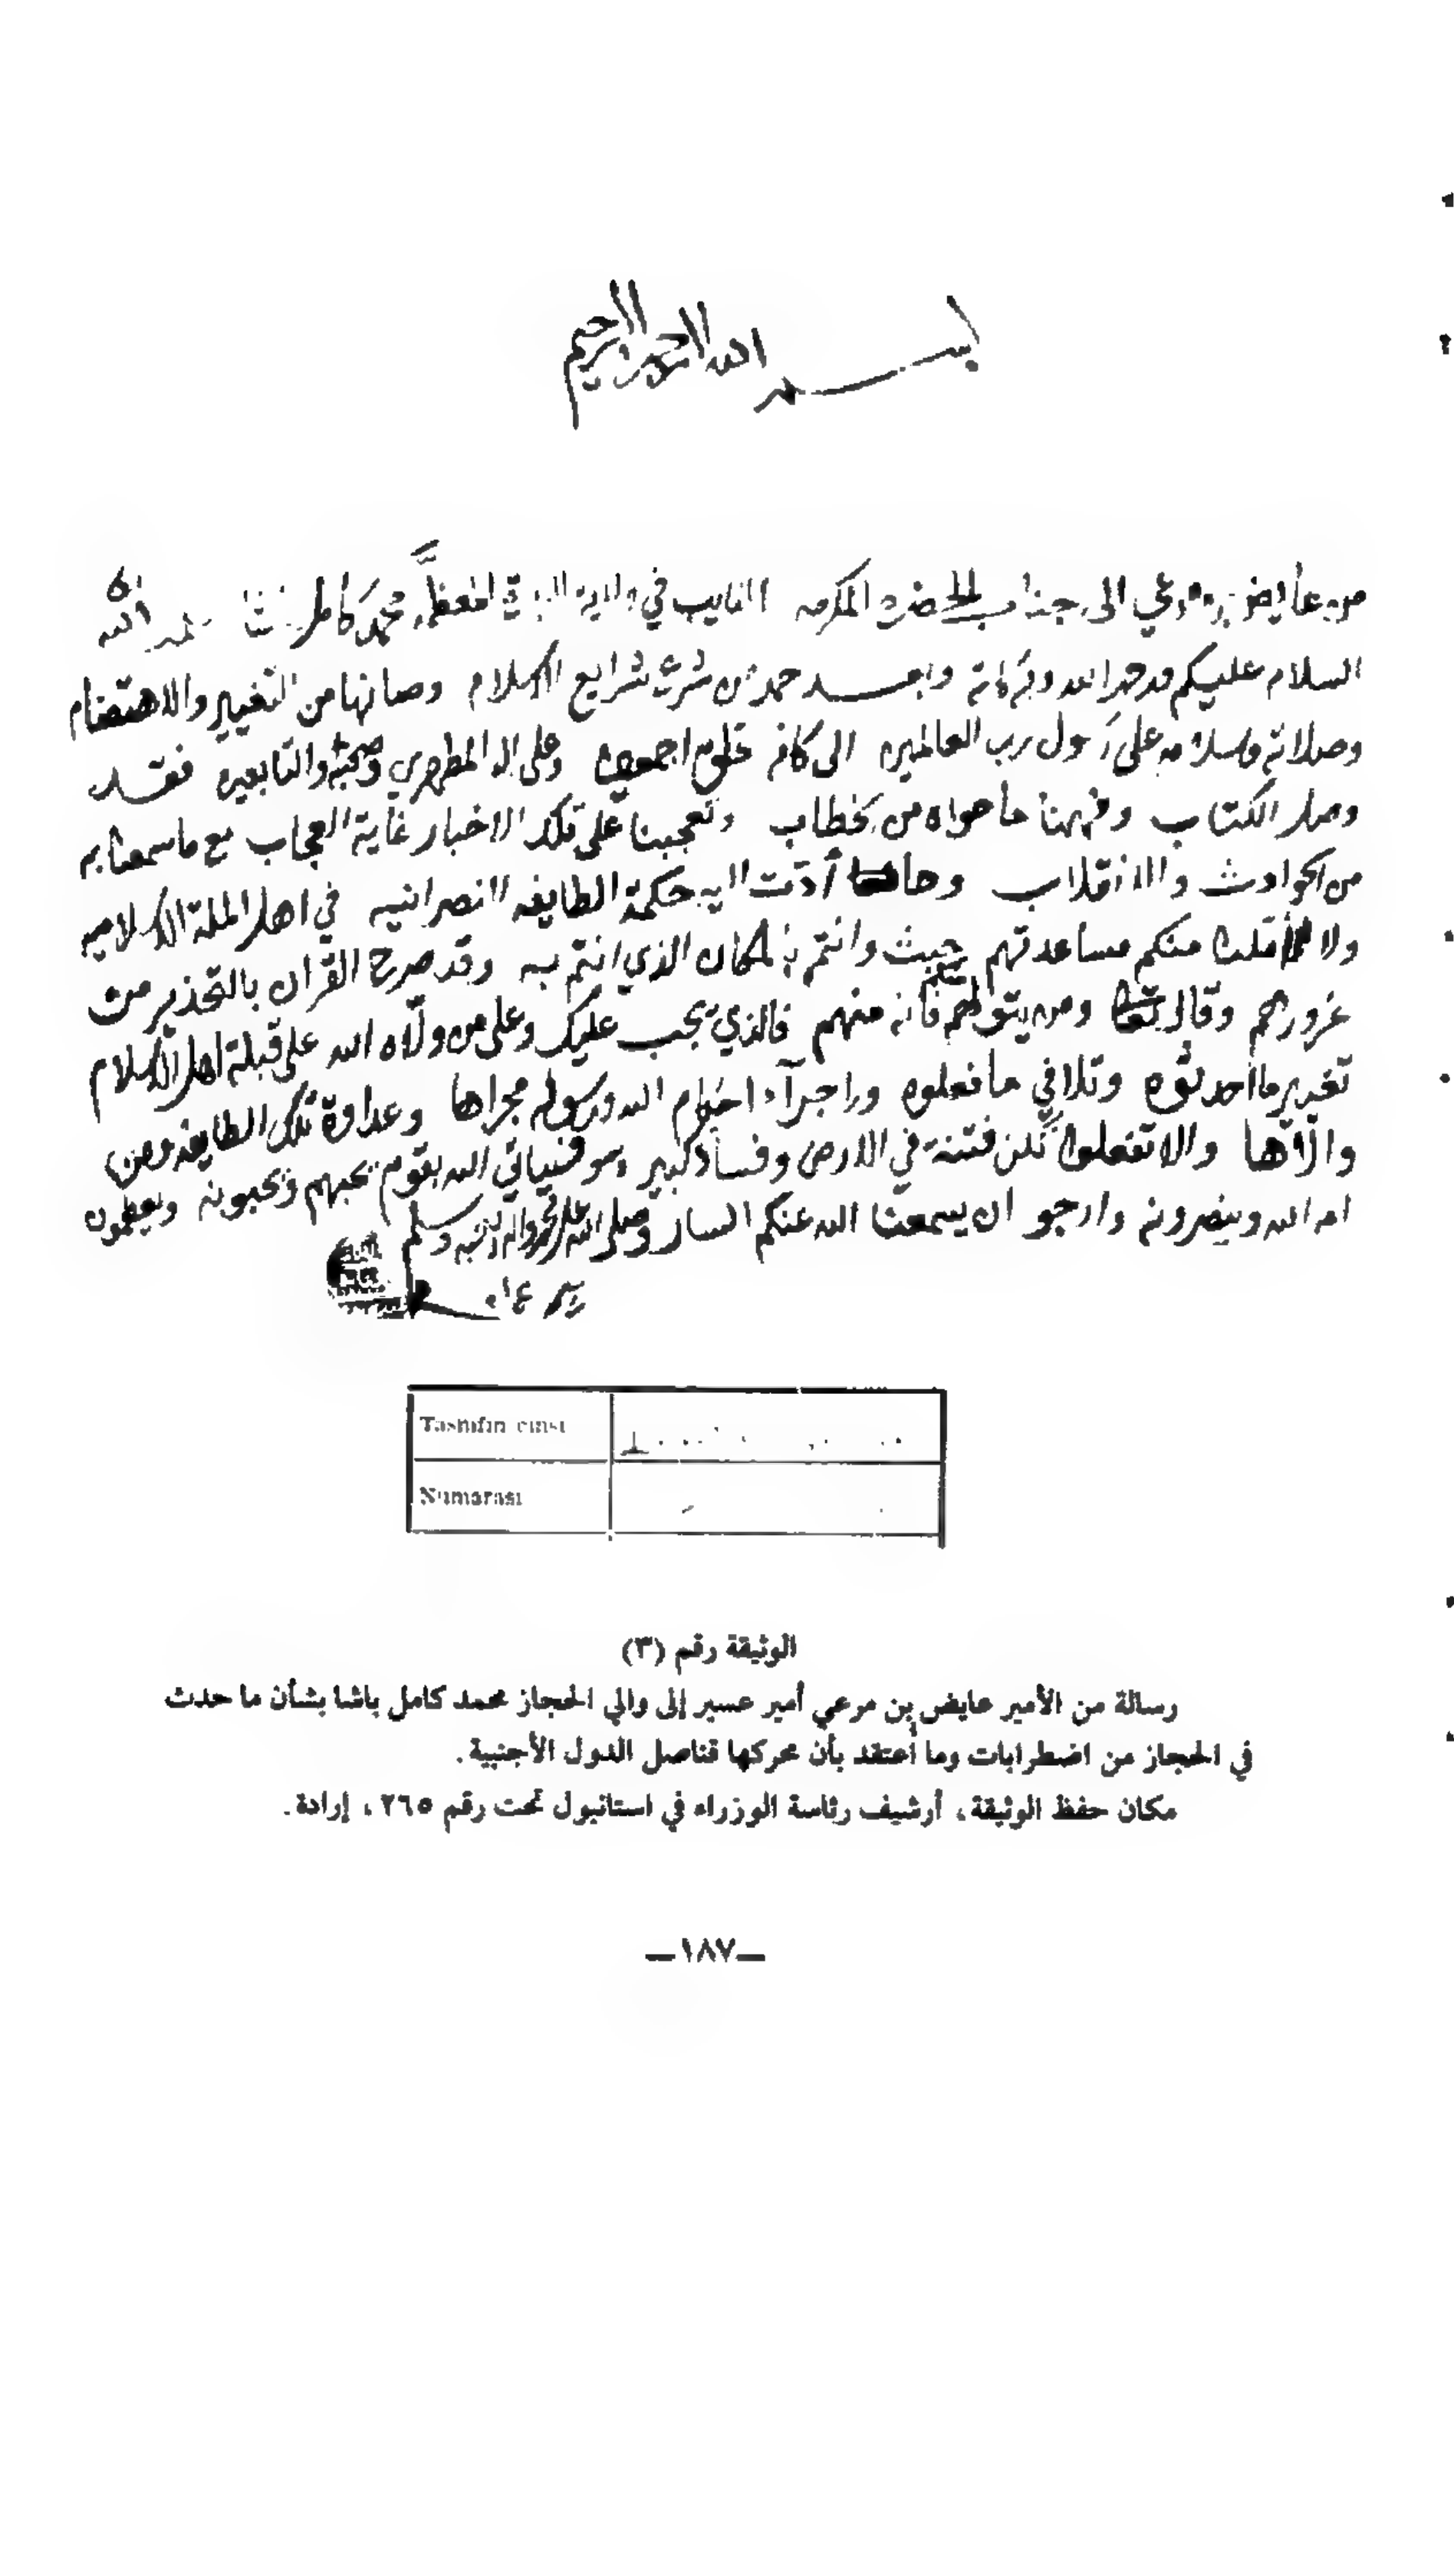 بسم الله الرحمن الرحيم
من عايض بن مرعي الى جناب الحضرة المكرمه النايب في ولاية المعظم محمد كامل باشا سلمه الله
السلام عليكم ورحمة الله وبركاته وبعد حمد من شرع شرايع الاسلام وصانها من التغيير والاهتضام
وصلاته وسلامه على رسول رب العالمين الى كافة خلقه اجمعين وعلى اله المطهرين وصحبه والتابعين فقد
وصل الكتاب وفهمنا ما حواه من خطاب وتعجبنا على تلك الاخبار غاية العجاب مع ما سمعنا به
من الحوادث والانقلاب وما أدّت اليه حكمة الطايفه النصرانيه في اهل الملة الاسلاميه
ولا منكم مساعدتهم حيث وانتم بالمكان الذي انتم به وقد صرح القران بالتحذير من
غرورهم وقال ومن يتولهم منكم فانه منهم فالذي يجب عليك وعلى من ولّاه الله على قبلة اهل الاسلام
تغيير ما احدثوه وتلافي ما فعلوه واجرآء احكام الله ورسوله مجراها وعداوة تلك الطايفه ومن
والاها والا تفعلوا تكن فتنة في الارض وفساد كبير وسوف ياتي الله بقوم يحبهم ويحبونه ويعظمون
امر الله وينصرونه وارجو ان يسمعنا الله عنكم السار وصلى الله على محمد واله وصحبه وسلم
Tasnifin cinsi
Numarası
الوثيقة رقم (٣)
رسالة من الأمير عايض بن مرعي أمير عسير إلى والي الحجاز محمد كامل باشا بشأن ما حدث
في الحجاز من اضطرابات وما أعتقد بأن محركها قناصل الدول الأجنبية.
مكان حفظ الوثيقة، أرشيف رئاسة الوزراء في استانبول تحت رقم ٢٦٥، إرادة.
ـ١٨٧ـ